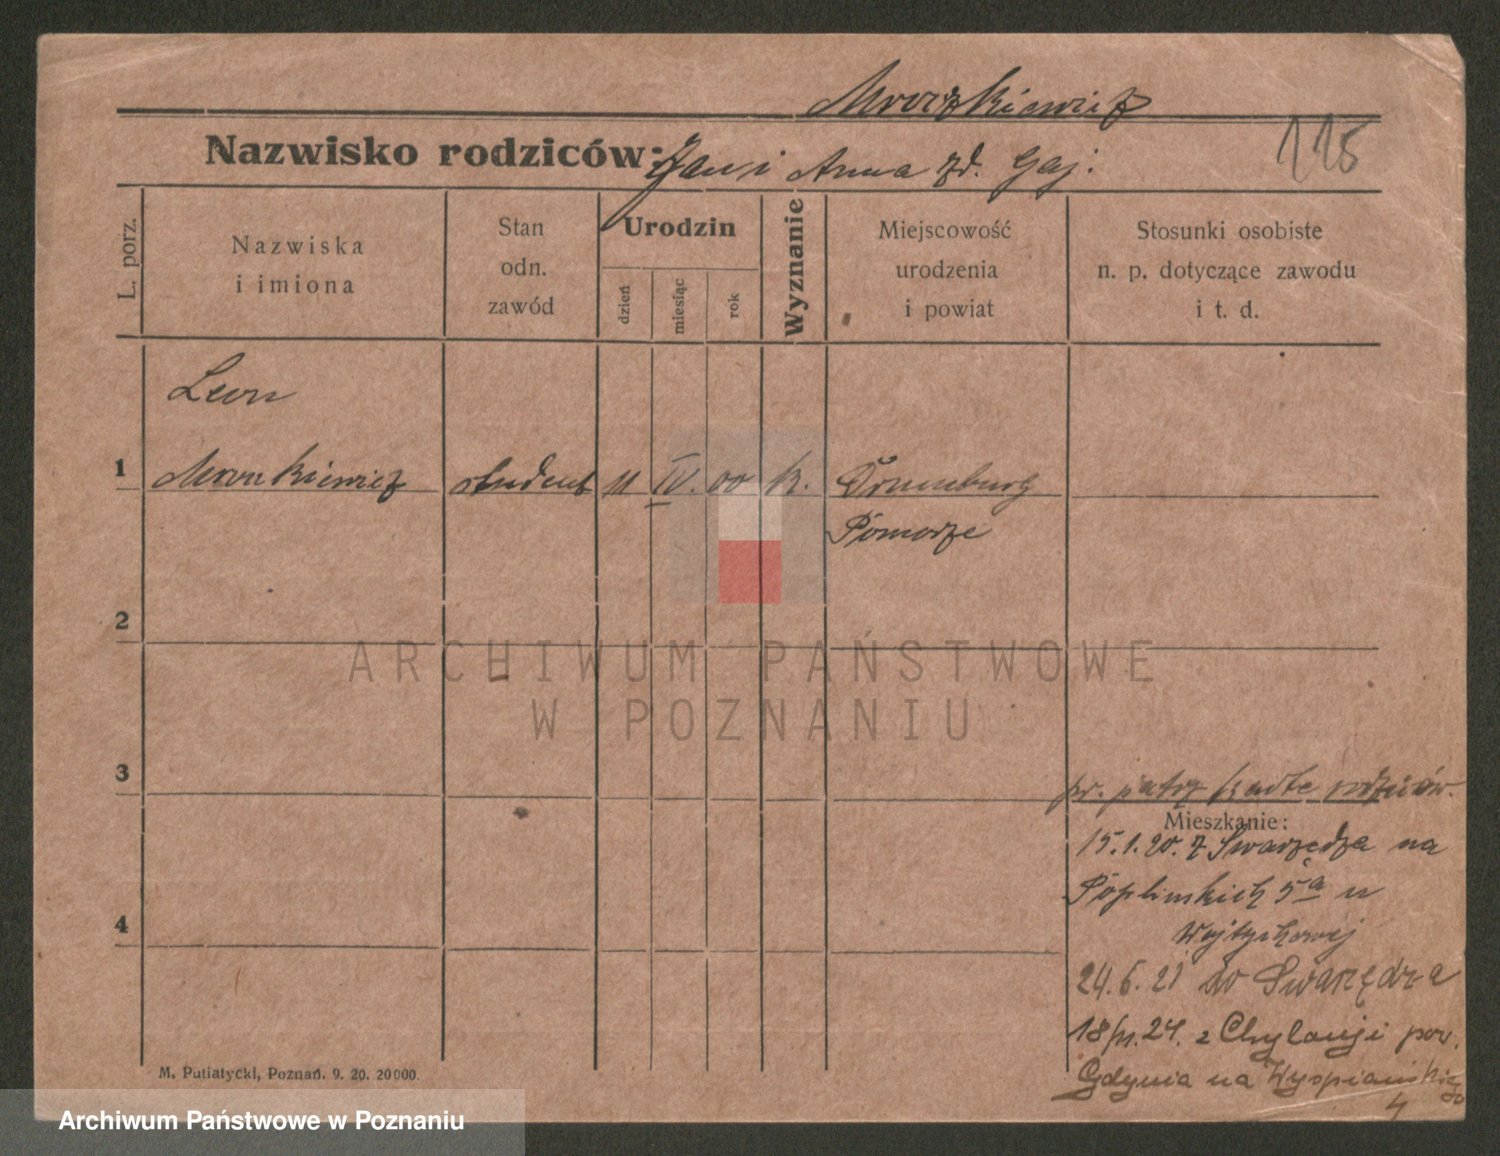 Mroczkiewicz
Nazwisko rodziców: Jan i Anna zd. Gaj.
115
L. porz.
Nazwiska
i imiona
Stan
odn.
zawód
Urodzin
dzień
miesiąc
rok
Wyznanie
Miejscowość
urodzenia
i powiat
Stosunki osobiste
n. p. dotyczące zawodu
i t. d.
Leon
1 Mroczkiewicz student 11 IV. 00 k.
Pomorze
2
3
pr. patrz kartę rodziców.
Mieszkanie:
15.1.20. z Swarzędza na
Poplińskich 5a u
Wojtzikowej
4
24.6.21 do Swarzędza
24. z Chylonji pow.
Gdynia na Wyspiańskiego
4
M. Putiatycki, Poznań. 9. 20. 20000.
ARCHIWUM PAŃSTWOWE
W POZNANIU
Archiwum Państwowe w Poznaniu